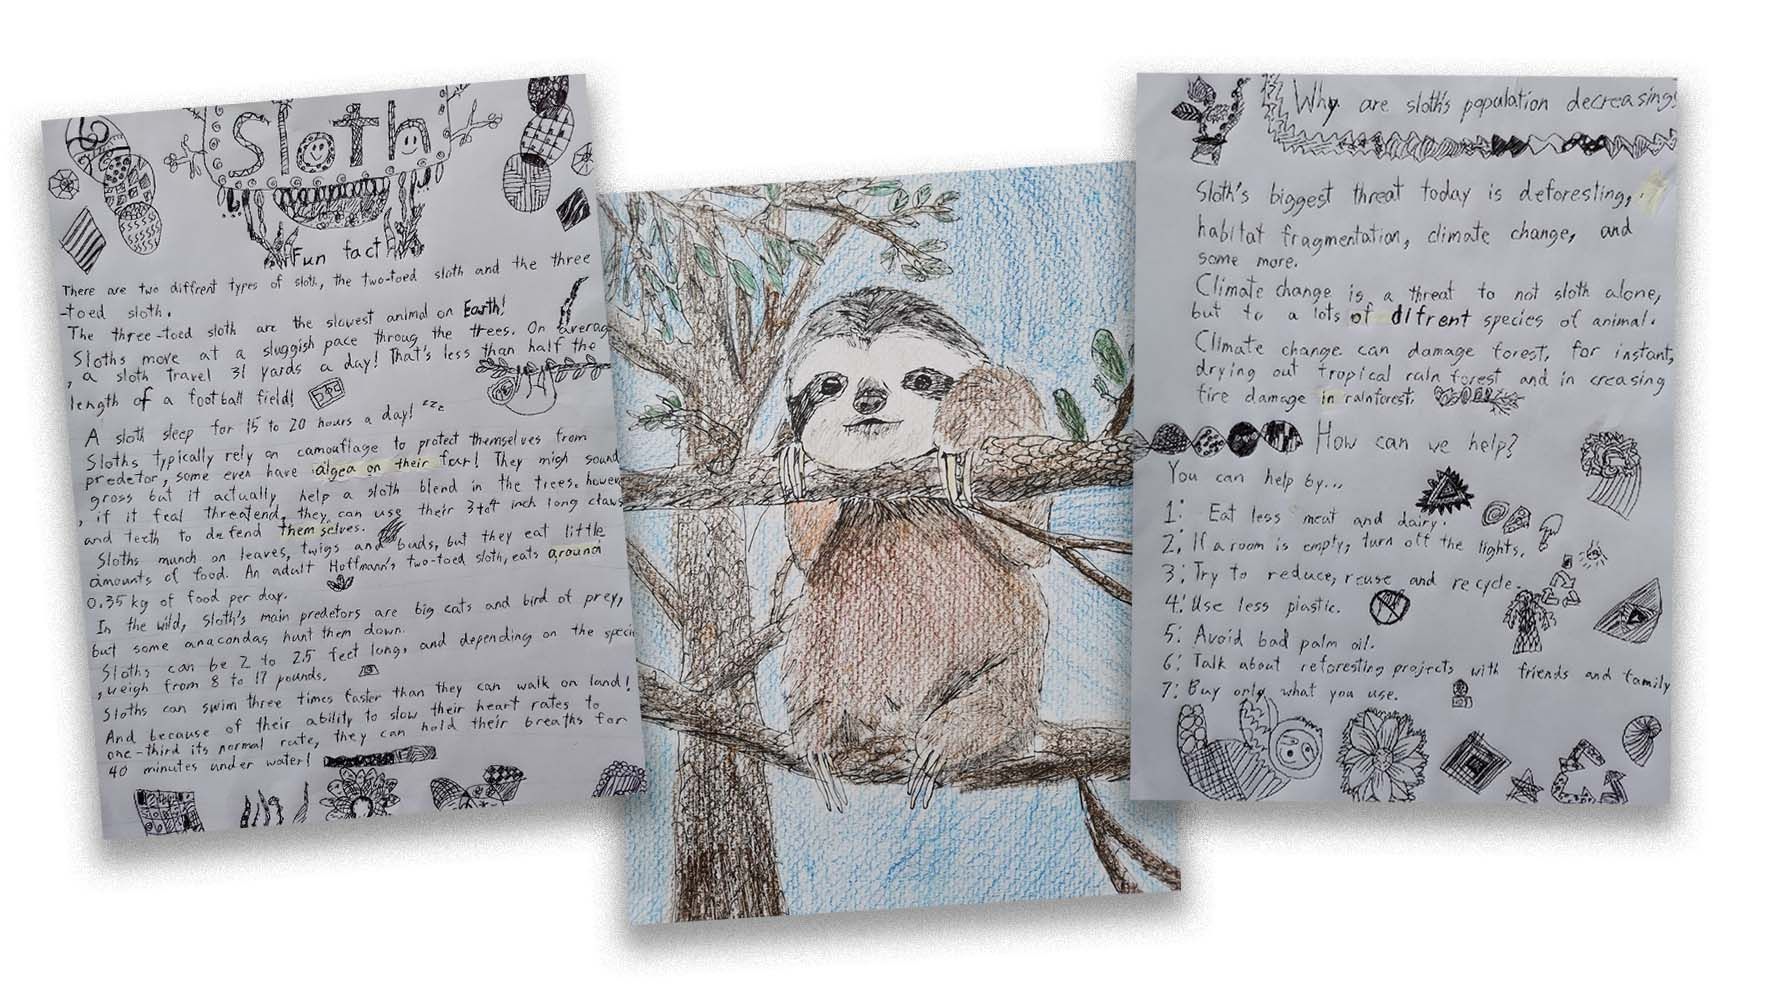 Sloth
Fun fact
There are two diffrent types of sloth, the two-toed sloth and the three
-toed sloth.
The three-toed sloth are the slowest animal on Earth!
Sloths move at a sluggish pace throug the trees. On averag
, a sloth travel 31 yards a day! That's less than half the
length of a football field!
A sloth sleep for 15 to 20 hours a day! zzz
Sloths typically rely on camouflage to protect themselves from
predetor, some even have algea on their fur! They migh sound
gross but it actually help a sloth blend in the trees. howev
, if it feal threatend, they can use their 3 to 4 inch long claws
and teeth to defend themselves.
Sloths munch on leaves, twigs and buds, but they eat little
amounts of food. An adult Hoffmann's two-toed sloth, eats around
0.35 kg of food per day.
In the wild, sloth's main predetors are big cats and bird of prey,
but some anacondas hunt them down.
Sloths can be 2 to 2.5 feet long, and depending on the speci
, weigh from 8 to 17 pounds.
Sloths can swim three times faster than they can walk on land!
And because of their ability to slow their heart rates to
one-third its normal rate, they can hold their breaths for
40 minutes under water!
Why are sloth's population decreasing?
Sloth's biggest threat today is deforesting,
habitat fragmentation, climate change, and
some more.
Climate change is a threat to not sloth alone,
but to a lots of difrent species of animal.
Climate change can damage forest, for instant,
drying out tropical rain forest and in creasing
fire damage in rainforest.
How can we help?
You can help by...
1: Eat less meat and dairy.
2, If a room is empty, turn off the lights.
3: Try to reduce, reuse and recycle.
4: Use less plastic.
5: Avoid bad palm oil.
6: Talk about reforesting projects with friends and family
7: Buy only what you use.